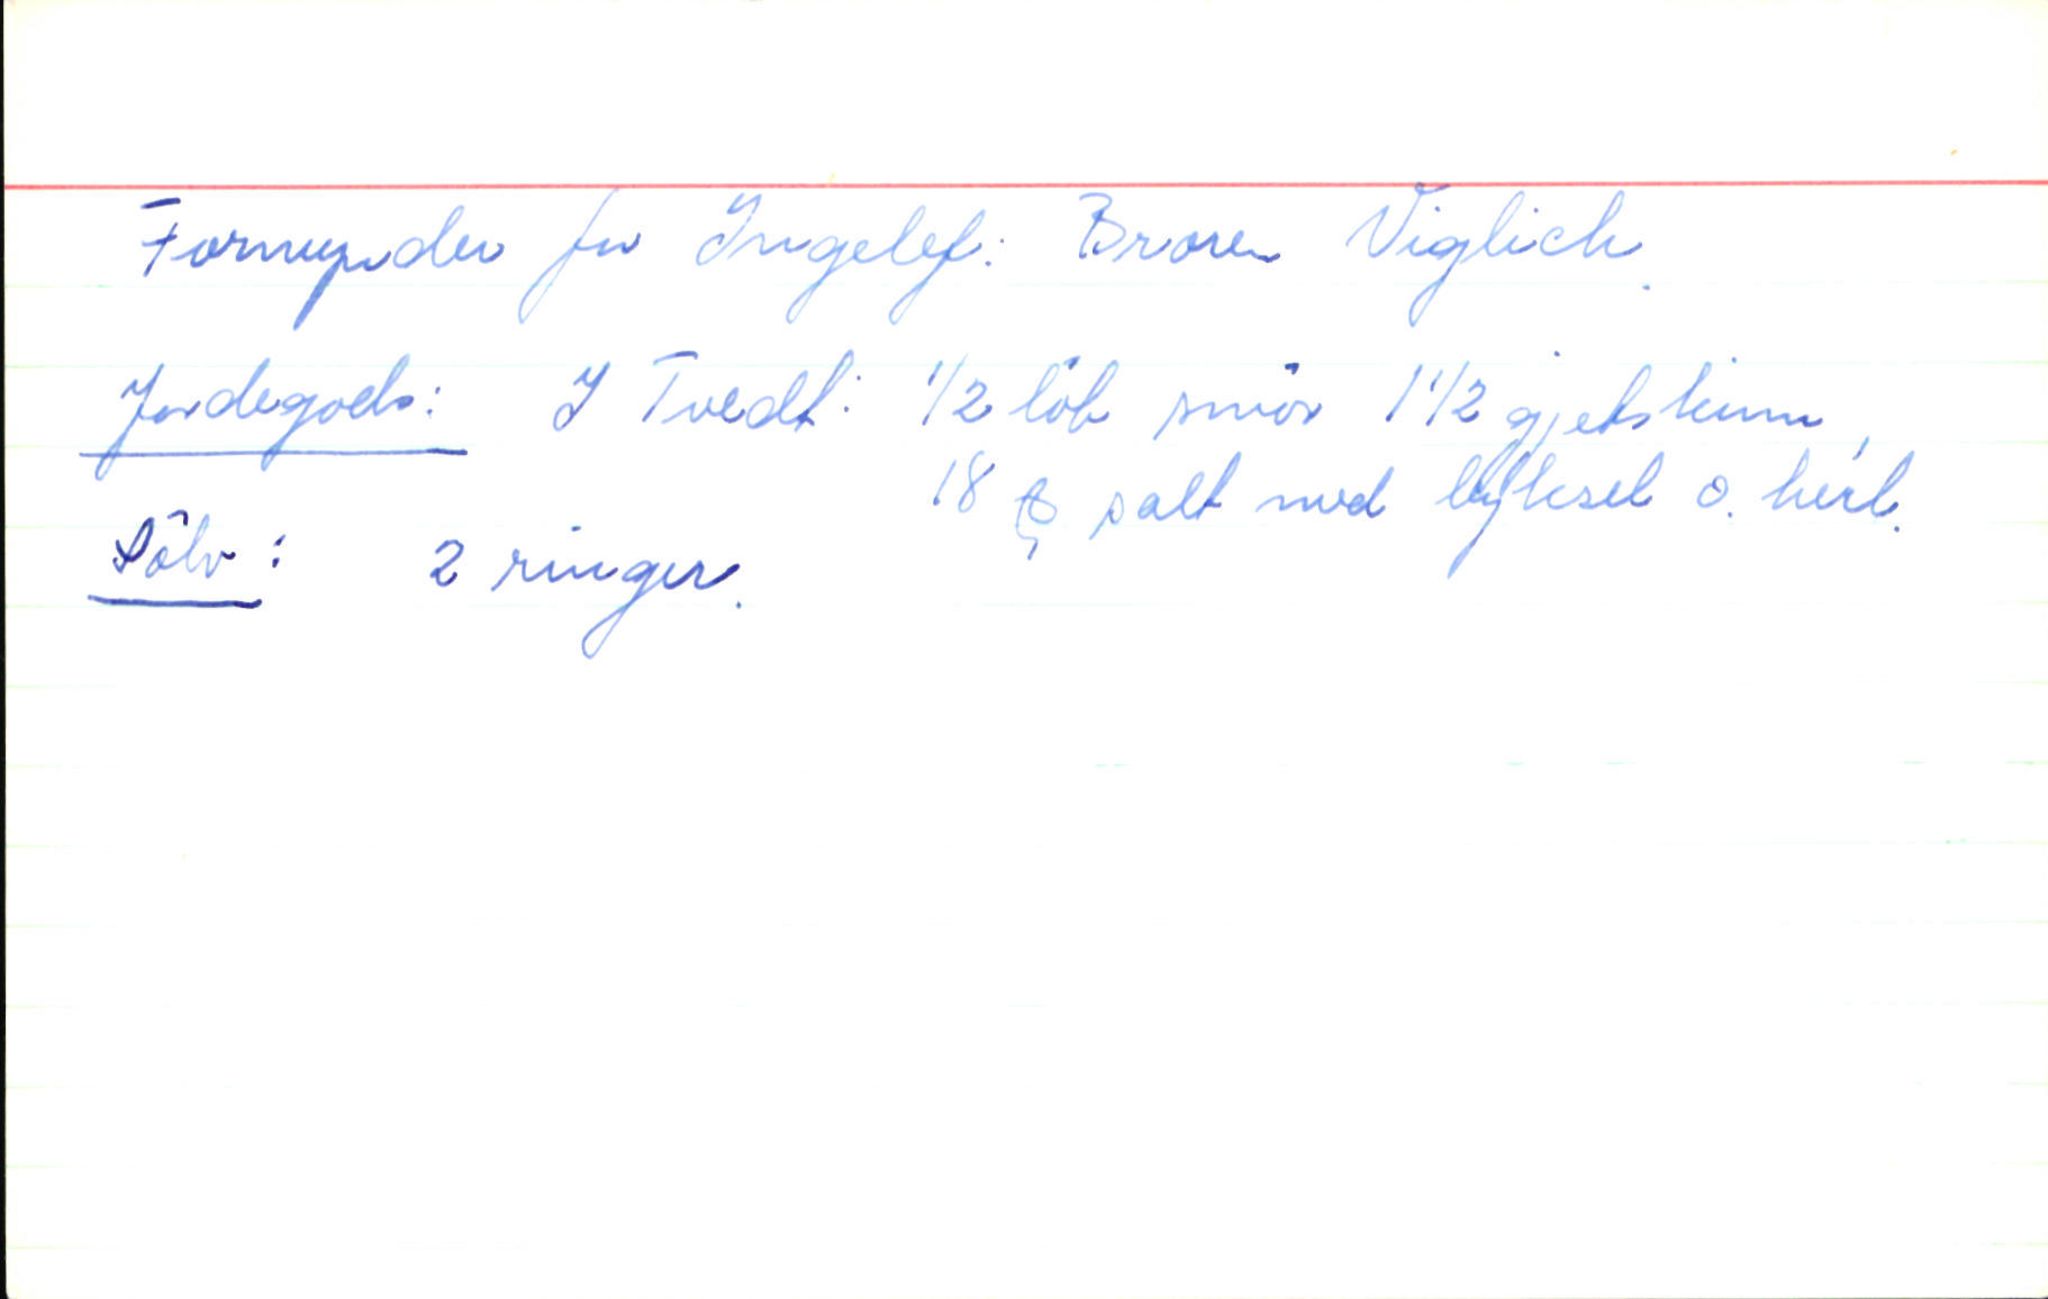 Formynder for Ingelef: Broren Viglich.
Jordegods: I Tvedt: 1/2 löb smör 1 1/2 gjetskinn,
18 ℔ salt med byksel o. herl.
Sölv: 2 ringer.